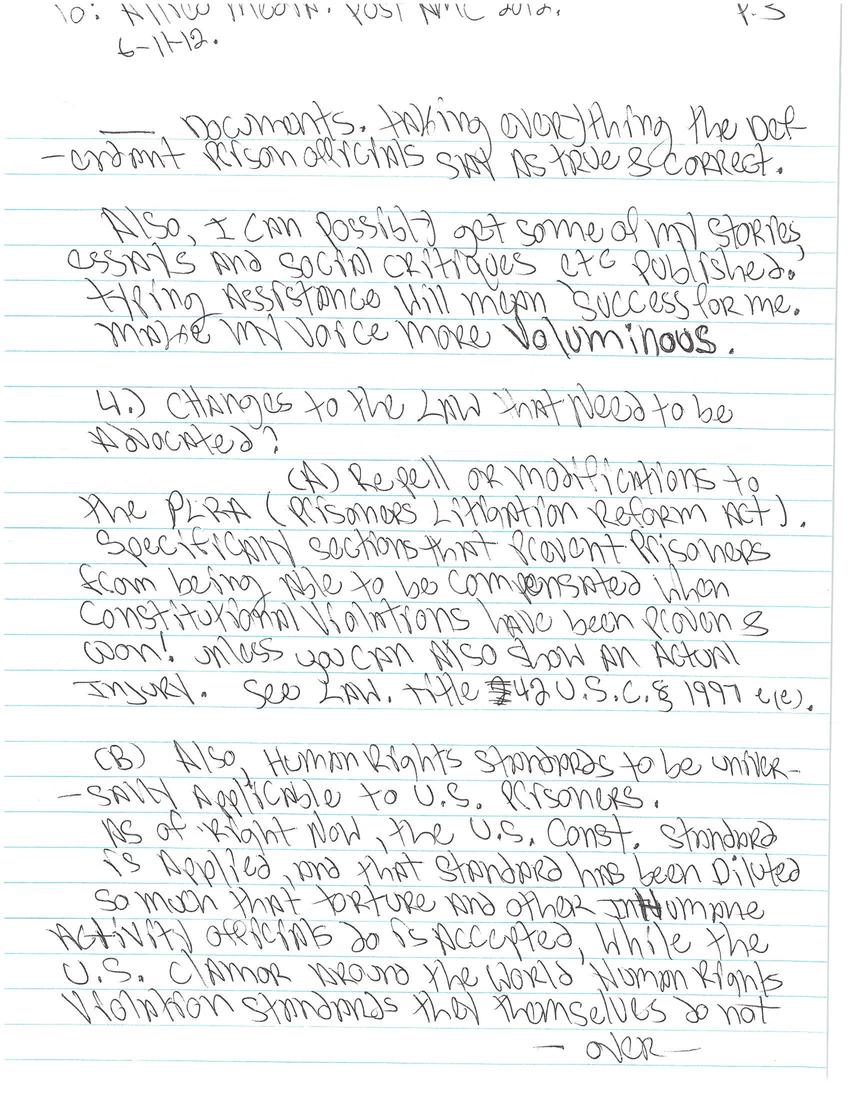 To: Allied Media. Post AMC 2012. P.3
6-11-12.
—— Documents. taking everything the Def-
-endant Prison officials say as true & correct.
Also, I can possibly get some of my stories,
essays and social critiques etc published.
typing assistance will mean success for me.
make my voice more voluminous.
4.) Changes to the Law that need to be
Advocated?
(A) Repell or modifications to
the PLRA (Prisoners Litigation Reform Act).
Specifically sections that prevent prisoners
from being able to be compensated when
Constitutional Violations have been proven &
won! unless you can also show an actual
Injury. See Law. title 42 U.S.C.§ 1997 e(e).
(B) Also, Human Rights standards to be univer-
-sally applicable to U.S. prisoners.
As of right now, the U.S. Const. standard
is applied, and that standard has been Diluted
so much that torture and other InHumane
Activity officials do is accepted, while the
U.S. clamor around the world Human Rights
Violation standards they themselves do not
— over —